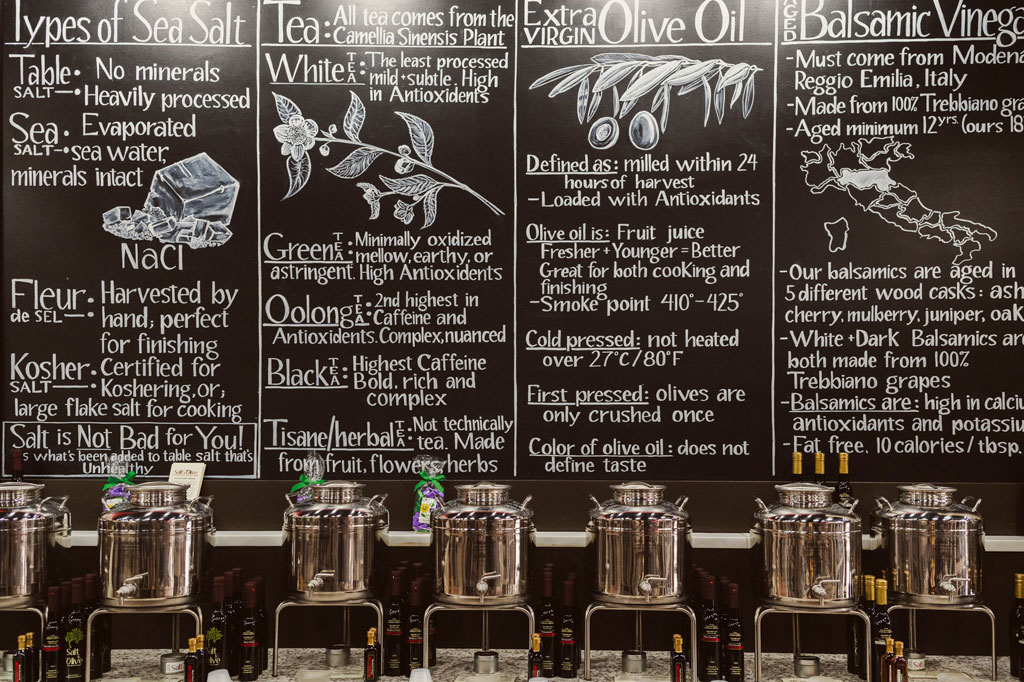 Types of Sea Salt
Table SALT • No minerals
• Heavily processed
Sea SALT • Evaporated
sea water,
minerals intact
NaCl
Fleur de SEL • Harvested by
hand; perfect
for finishing
Kosher SALT • Certified for
Koshering, or;
large flake salt for cooking
Salt is Not Bad for You!
what's been added to table salt that's
Unhealthy
Tea: All tea comes from the
Camellia Sinensis Plant
White TEA: The least processed
mild + subtle. High
in Antioxidents
Green TEA: Minimally oxidized
mellow, earthy, or
astringent. High Antioxidents
Oolong TEA: 2nd highest in
Caffeine and
Antioxidents. Complex, nuanced
Black TEA: Highest Caffeine
Bold, rich and
complex
Tisane/herbal TEA: Not technically
tea. Made
from fruit, flowers, herbs
Extra VIRGIN Olive Oil
Defined as: milled within 24
hours of harvest
-Loaded with Antioxidants
Olive oil is: Fruit juice
Fresher + Younger = Better
Great for both cooking and
finishing
-Smoke point 410°-425°
Cold pressed: not heated
over 27°C/80°F
First pressed: olives are
only crushed once
Color of olive oil: does not
define taste
Balsamic
-Must come from Modena
Reggio Emilia, Italy
-Made from 100% Trebbiano
-Aged minimum 12 yrs. (ours 18
-Our balsamics are aged in
5 different wood casks: ash
cherry, mulberry, juniper, oak
-White + Dark Balsamics are
both made from 100%
Trebbiano grapes
-Balsamics are: high in
antioxidants and
-Fat free. 10 calories/tbsp.
Salt Olive
Salt Olive